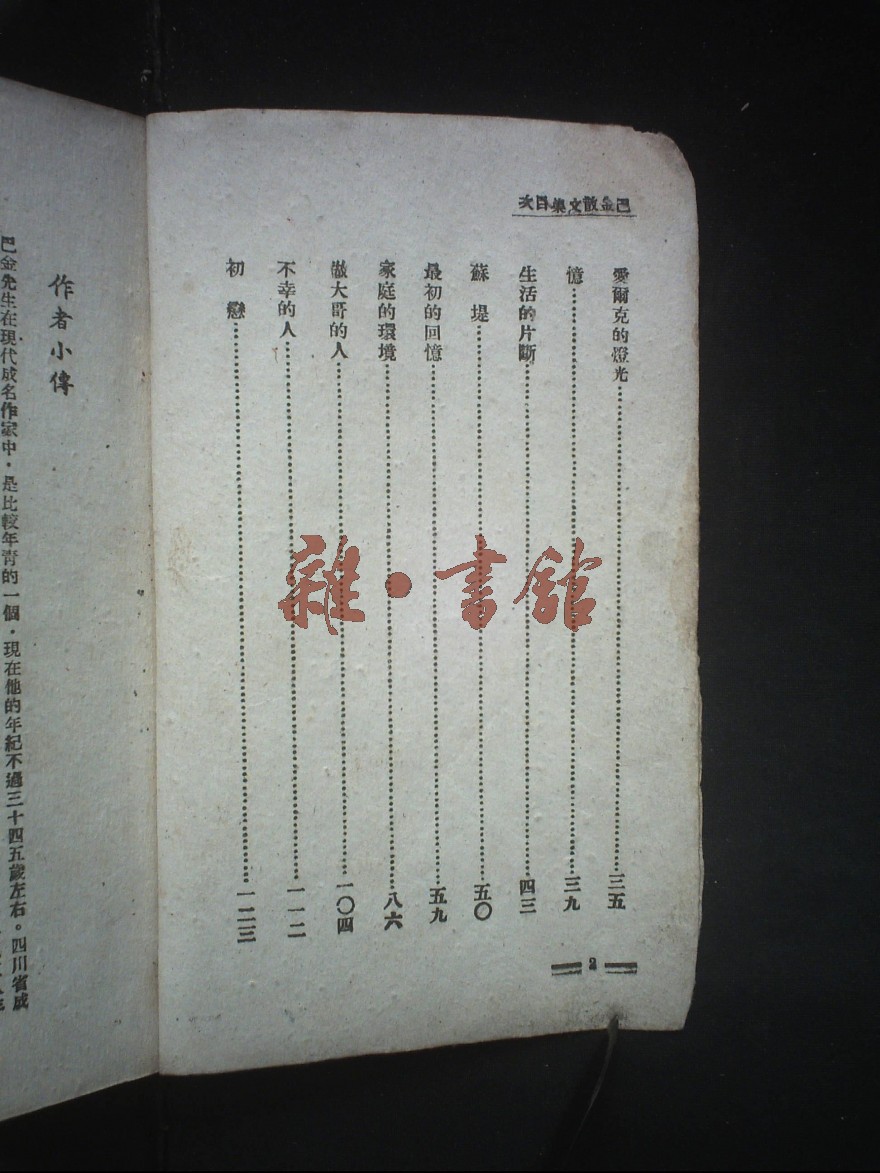 巴金散文集目次
愛爾克的燈光……三五
憶……三九
生活的片斷……四三
蘇堤……五〇
最初的回憶……五九
家庭的環境……八六
做大哥的人……一〇四
不幸的人……一一二
初戀……一二三
2
雜·書館
作者小傳
巴金先生在現代成名作家中，是比較年青的一個，現在他的年紀不過三十四五歲左右。四川省成